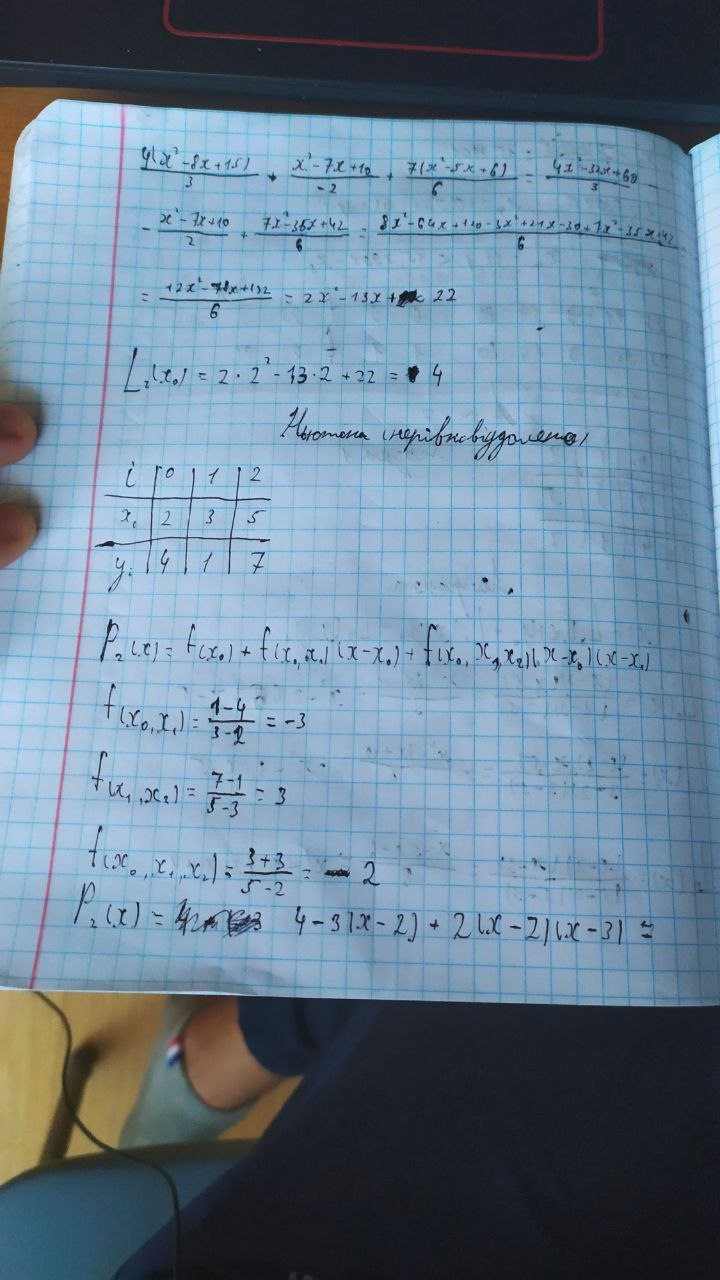 4(x²-8x+15)/3 + x²-7x+10/-2 + 7(x²-5x+6)/6 = 4x²-32x+60/3 -
- x²-7x+10/2 + 7x²-35x+42/6 = 8x²-64x+120-3x²+21x-30+7x²-35x+42/6
= 12x²-78x+132/6 = 2x²-13x+22
L₂(x₀) = 2·2²-13·2+22 = 4
Ньютона (нерівновіддалена)
i 0 1 2
xᵢ 2 3 5
yᵢ 4 1 7
P₂(x) = f(x₀) + f(x₀,x₁)(x-x₀) + f(x₀,x₁,x₂)(x-x₀)(x-x₁)
f(x₀,x₁) = 1-4/3-2 = -3
f(x₁,x₂) = 7-1/5-3 = 3
f(x₀,x₁,x₂) = 3+3/5-2 = 2
P₂(x) = 4-3(x-2) + 2(x-2)(x-3) =